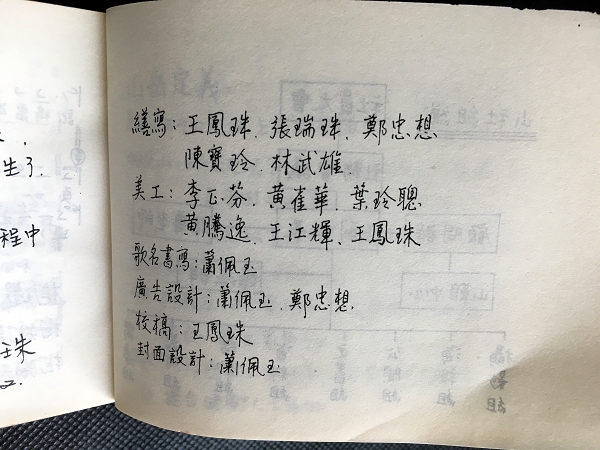 生了.
程中
繕寫：王鳳珠、張瑞珠、鄭忠想
陳寶玲、林武雄.
美工：李正芬、黃崔華、葉玲聰
黃騰逸、王江輝、王鳳珠
歌名書寫：蕭佩玉
廣告設計：蕭佩玉、鄭忠想.
校稿：王鳳珠
封面設計：蕭佩玉.